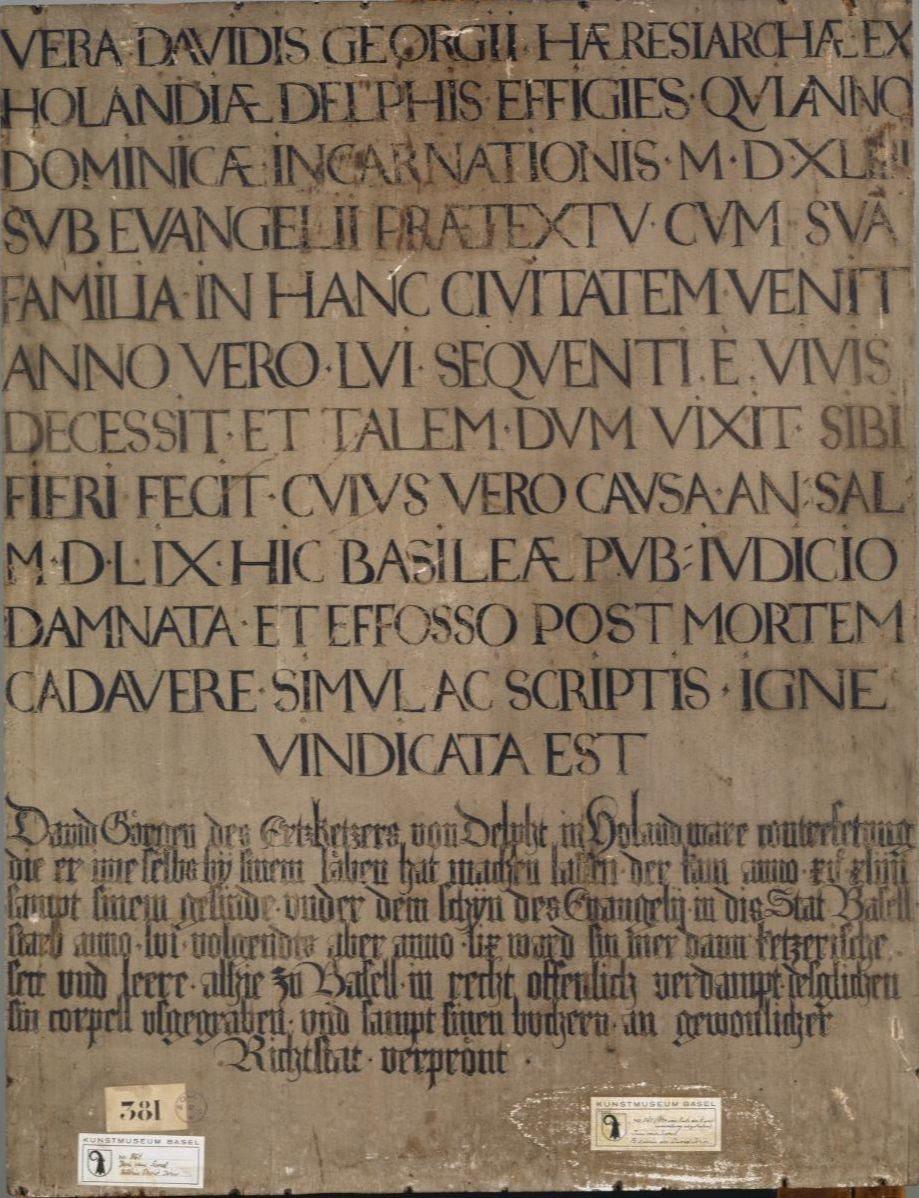 VERA · DAVIDIS GEORGII · HÆRESIARCHÆ · EX
HOLANDIÆ DELPHIS · EFFIGIES · QVI ANNO
DOMINICÆ · INCARNATIONIS · M · D · XLIIII
SVB EVANGELII PRÆTEXTV · CVM · SVA
FAMILIA · IN HANC CIVITATEM · VENIT
ANNO VERO · LVI · SEQVENTI · E · VIVIS
DECESSIT · ET TALEM · DVM VIXIT · SIBI
FIERI · FECIT · CVIVS VERO CAVSA · AN : SAL :
M · D · L · IX · HIC BASILEÆ PVB : IVDICIO
DAMNATA · ET EFFOSSO POST MORTEM
CADAVERE · SIMVL AC SCRIPTIS · IGNE
VINDICATA EST
Dauid Görgen des Ertzketzers von Delpht in Holand ware contrefetung
die er ime selbs by sinem läben hat machen lassen · der kam anno · xvᶜ xliiii
sampt sinem gesinde · vnder dem schyn des Euangelij · in dis Stat Basell
starb anno · lvi · volgendts aber anno · lix ward sin hier dann ketzerische
sect vnd leere · alhie zu Basell · in recht offenlich verdampt · desglichen
sin corpell vsgegraben · vnd sampt sinen buchern · an gewonlicher
Richtstat · verprönt ·
381
KUNSTMUSEUM BASEL
KUNSTMUSEUM BASEL